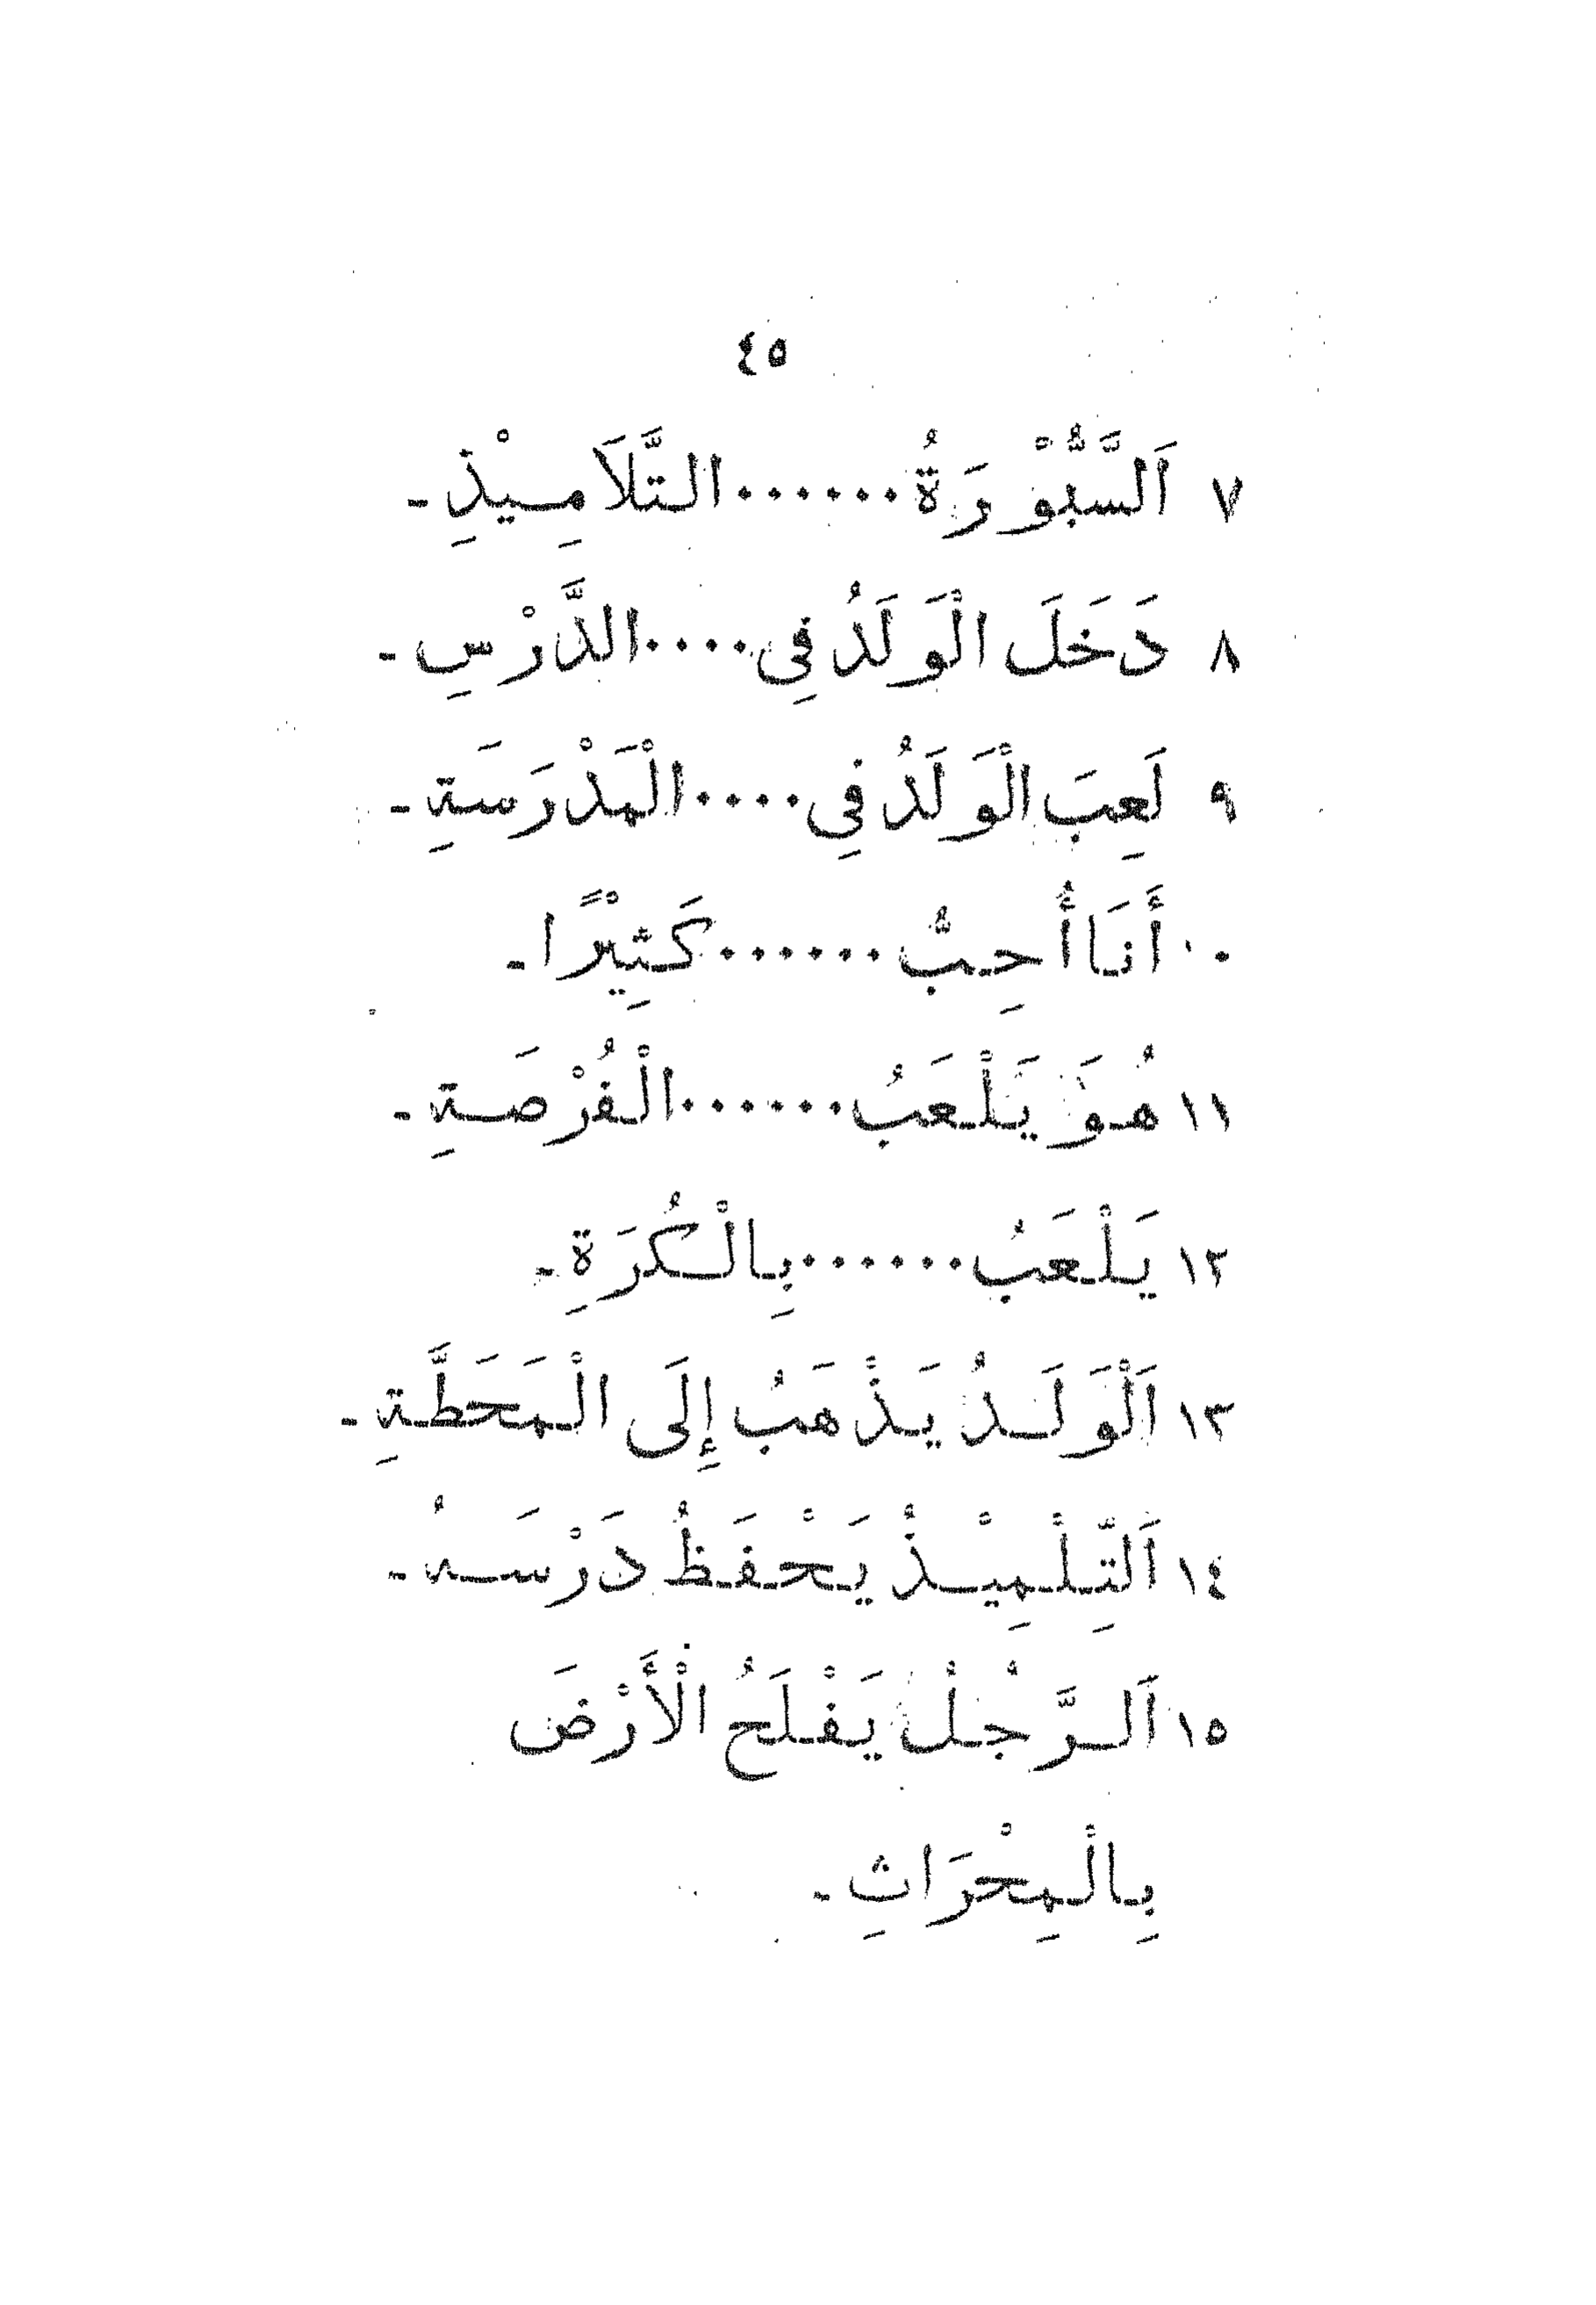 ٤٥
٧ اَلسَّبُّوْرَةُ ...... التَّلَامِيْذِ -
٨ دَخَلَ الْوَلَدُ فِي .... الدَّرْسِ -
٩ لَعِبَ الْوَلَدُ فِي .... الْمَدْرَسَةِ -
١٠ أَنَا أُحِبُّ ...... كَثِيْرًا -
١١ هُوَ يَلْعَبُ ...... الْفُرْصَةِ -
١٢ يَلْعَبُ ...... بِالْكُرَةِ -
١٣ اَلْوَلَدُ يَذْهَبُ إِلَى الْمَحَطَّةِ -
١٤ اَلتِّلْمِيْذُ يَحْفَظُ دَرْسَهُ -
١٥ اَلرَّجُلُ يَفْلَحُ الْأَرْضَ
بِالْمِحْرَاثِ -